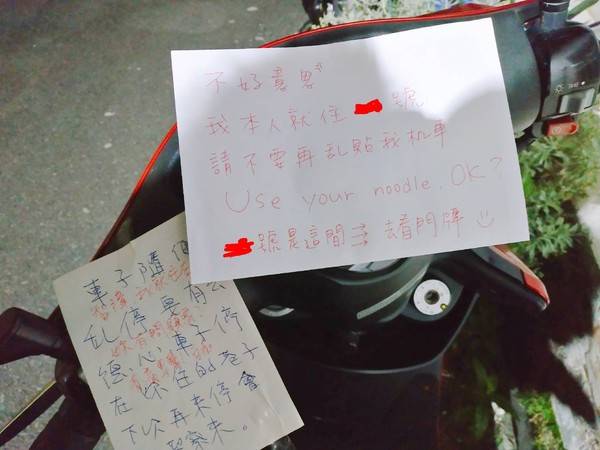 不好意思
我本人就住 號
請不要再乱貼我机車
Use your noodle. OK?
號是這間⇉ 去看門牌
車子隨便
乱停 要有公
德心, 車子停
在 你住的巷子
下次再來停會
警察來。